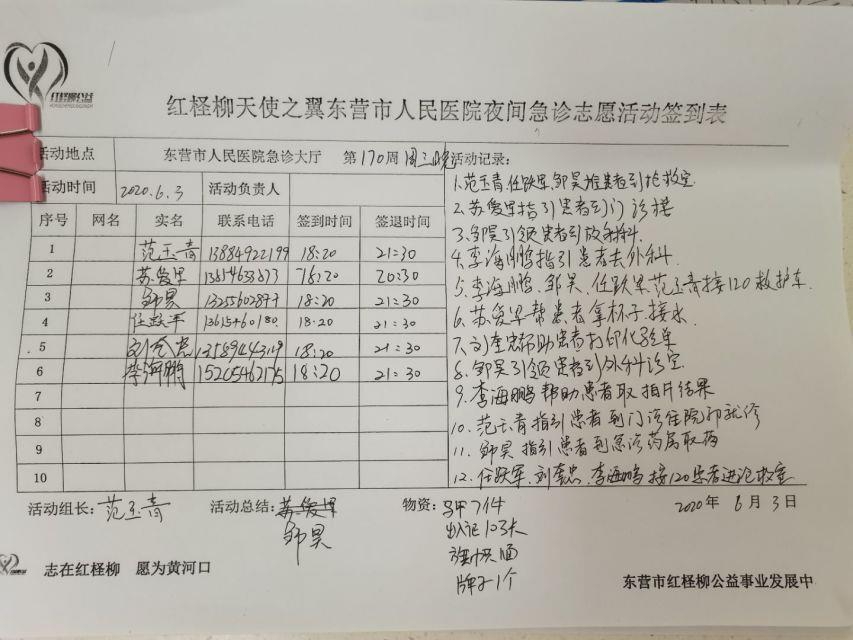 红柽柳公益
红柽柳天使之翼东营市人民医院夜间急诊志愿活动签到表
活动地点 东营市人民医院急诊大厅 第170周 周三晚 活动记录:
活动时间 2020.6.3 活动负责人
序号 网名 实名 联系电话 签到时间 签退时间
1 范玉青 13884922199 18:20 21:30
2 苏爱军 20:30
3 邹昊 18:20 21:30
4 任跃军 18:20 21:30
5 刘奎忠 18:20 21:30
6 李海鹏 15205462175 18:20 21:30
7
8
9
10
1.范玉青.任跃军.邹昊推患者到抢救室
2.苏爱军指引患者到门诊楼
3.邹昊引领患者到放射科.
4.李海鹏指引患者去外科.
5.李海鹏.邹昊.任跃军.范玉青接120救护车.
6.苏爱军帮患者拿杯子.接水.
7.刘奎忠帮助患者打印化验单
8.邹昊引领患者到外科诊室
9.李海鹏帮助患者取拍片结果
10.范玉青指引患者到门诊住院部就诊
11.邹昊指引患者到急诊药房取药
12.任跃军.刘奎忠.李海鹏接120患者进抢救室
活动组长: 范玉青 活动总结: 苏爱军 物资: 马甲7件 2020年 6月3日
邹昊 出入证103大
牌子1个
志在红柽柳 愿为黄河口
东营市红柽柳公益事业发展中